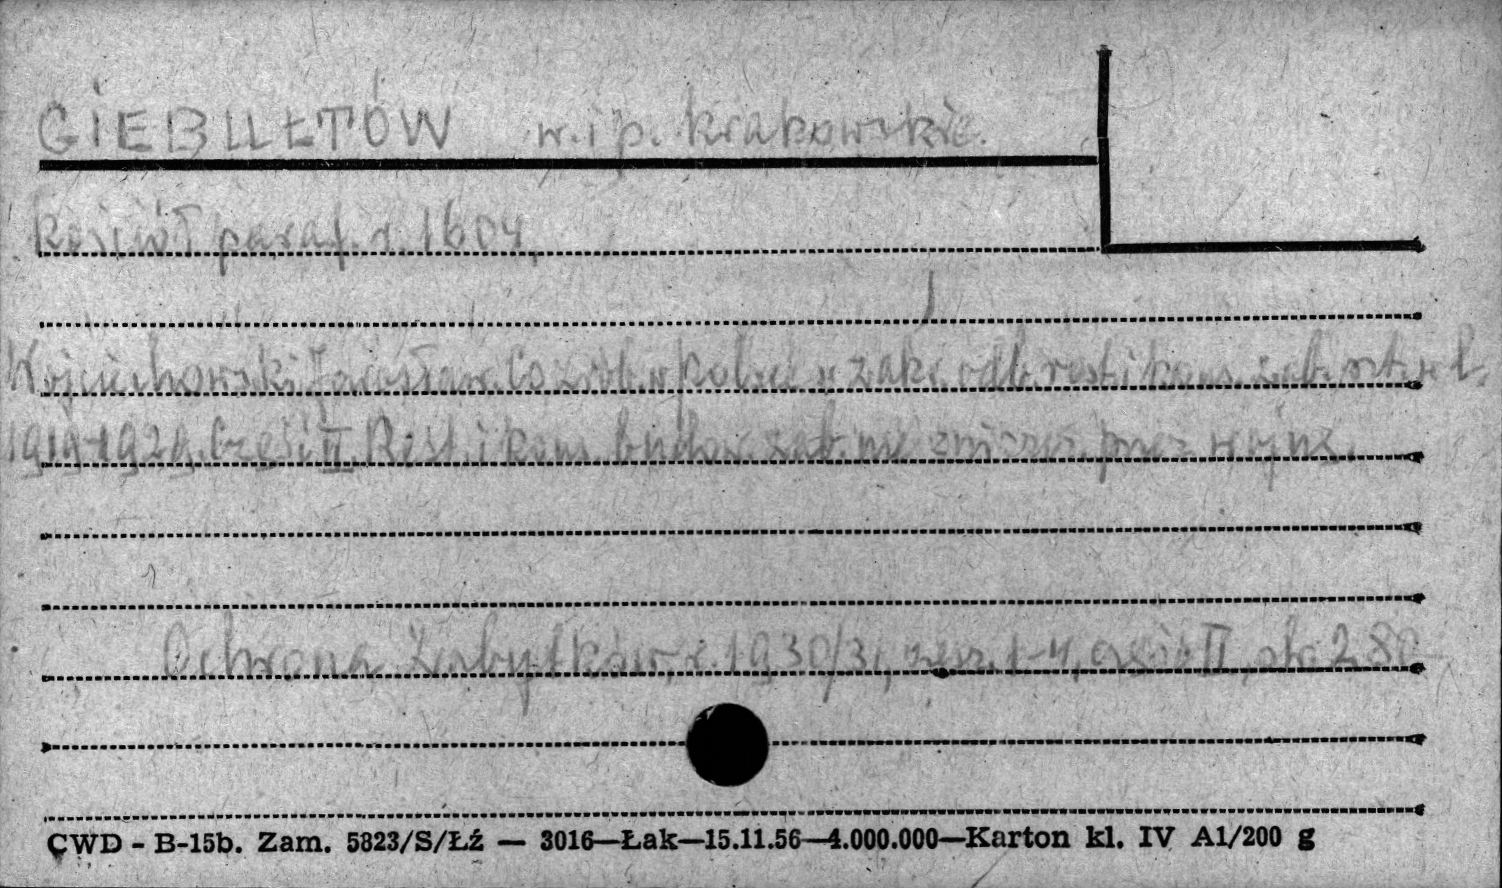 GIEBUŁTÓW w. i p. krakowskie.
kościół paraf. r. 1604
Wojciechowski Jarosław. Co zrob. w Polsce w zakr. odb. rest. i kons. zab. szt. w l.
1919-1929. Część II. Rest. i kons. budow. zab. nie zniszcz. przez wojnę.
Ochrona Zabytków, r. 1930/31, zesz. 1-4, część II, str. 280
CWD - B-15b. Zam. 5823/S/Łź — 3016—Łak—15.11.56—4.000.000—Karton kl. IV A1/200 g